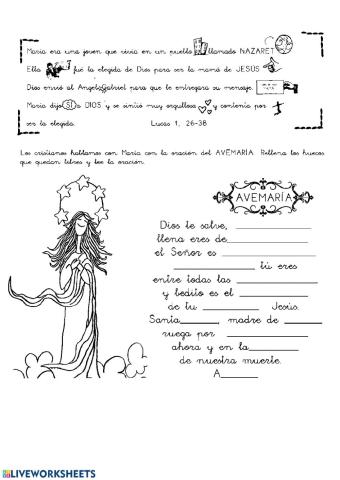 Maria era una joven que vivía en un pueblo llamado NAZARET
Ella fue la elegida de Dios para ser la mamá de JESÚS
Dios envió al Angel Gabriel para que le entregara su mensaje.
Maria dijo SÍ a DIOS y se sintió muy orgullosa y contenta por
ser la elegida. Lucas 1, 26-38
Los cristianos hablamos con Maria con la oración del AVEMARÍA. Rellena los huecos
que quedan libres y lee la oración.
AVEMARÍA
Dios te salve, ____
llena eres de ____
el Señor es ____
____ tú eres
entre todas las ____
y bedito es el ____
de tu ____ Jesús.
Santa ____ madre de ____
ruega por ____
ahora y en la ____
de nuestra muerte.
A____
LIVEWORKSHEETS